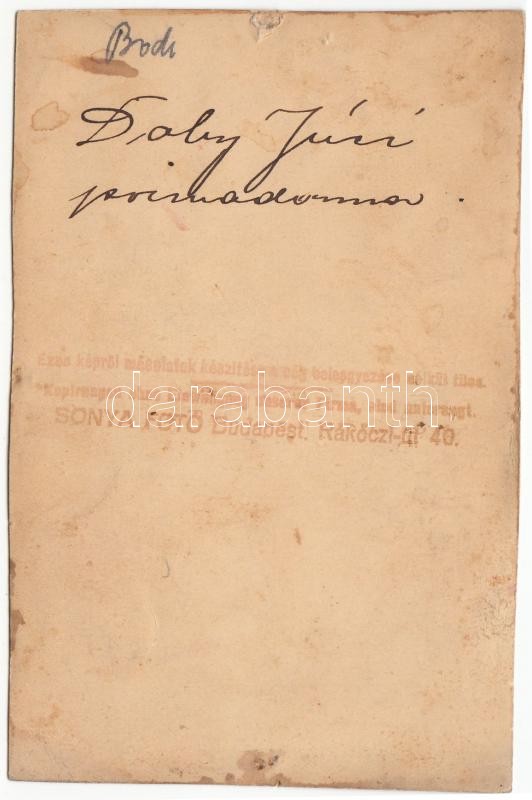 Bodi
Doby Juci
primadonna.
Ezen képről másolatok készítése a cég beleegyezése nélkül tilos.
SONYA FOTÓ Budapest, Rákóczi-út 40.
darabanth